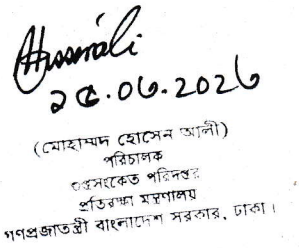 Hussnali
২৫.০৬.২০২৬
(মোহাম্মদ হোসেন আলী)
পরিচালক
গুপ্তসংকেত পরিদপ্তর
প্রতিরক্ষা মন্ত্রণালয়
গণপ্রজাতন্ত্রী বাংলাদেশ সরকার, ঢাকা।